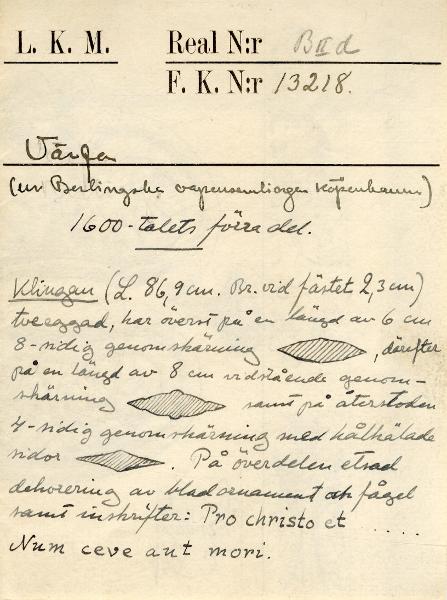 L. K. M. Real N:r B II d
F. K. N:r 13218.
Värja
(ur Berlingska vapensamlingen Köpenhamn)
1600-talets förra del.
Klingan (L. 86,9 cm. Br. vid fästet 2,3 cm)
tveeggad, har överst på en längd av 6 cm
8-sidig genomskärning , därefter
på en längd av 8 cm vidstående genom-
skärning samt på återstoden
4-sidig genomskärning med hålhälade
sidor . På överdelen etsad
dekorering av bladornament och fågel
samt inskrifter: Pro christo et .....
Num ceve aut mori.